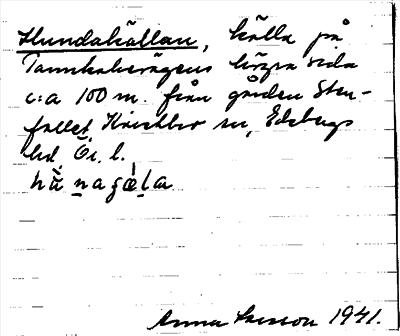 Hundakällan, källa på
Tannkakerägens högra sida
c:a 100 m. från gården Sten-
fallet, Knistbro sn, Edsbergs
hd, Ör. l.
Anna Larsson 1941.